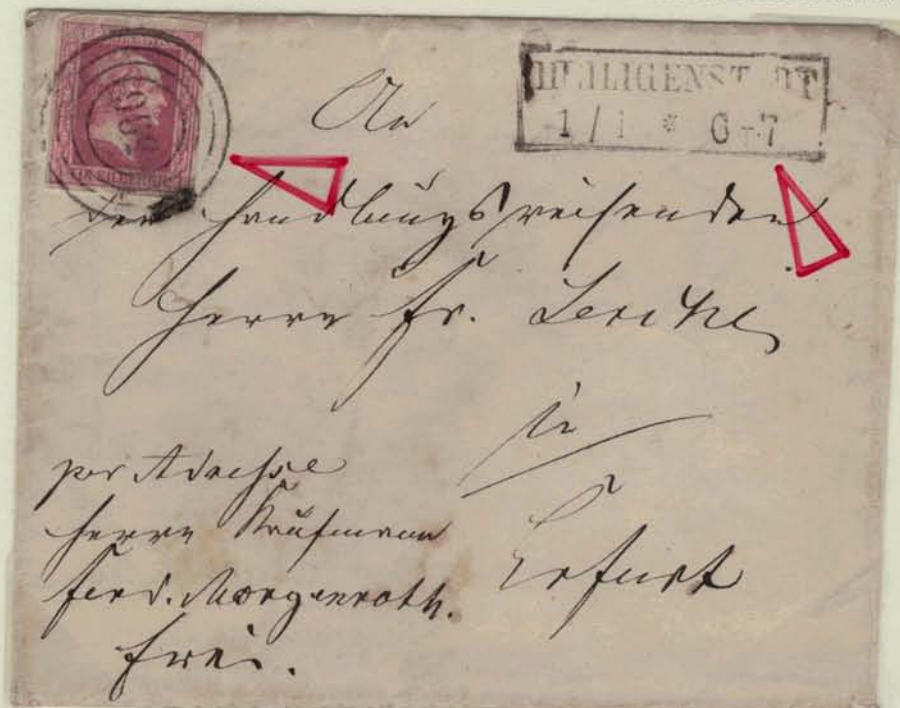 EIN SILBERGR.
HEILIGENSTADT
1 / 1 * 6-7
An
den Handlungsreisenden
Herrn Fr.
in
Erfurt
per Adresse
Herrn Kaufmann
Ferd. Morgenroth.
frei.